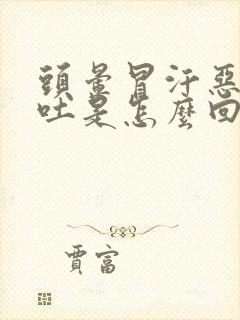 頭暈冒汗惡
吐是怎麼回
賈富